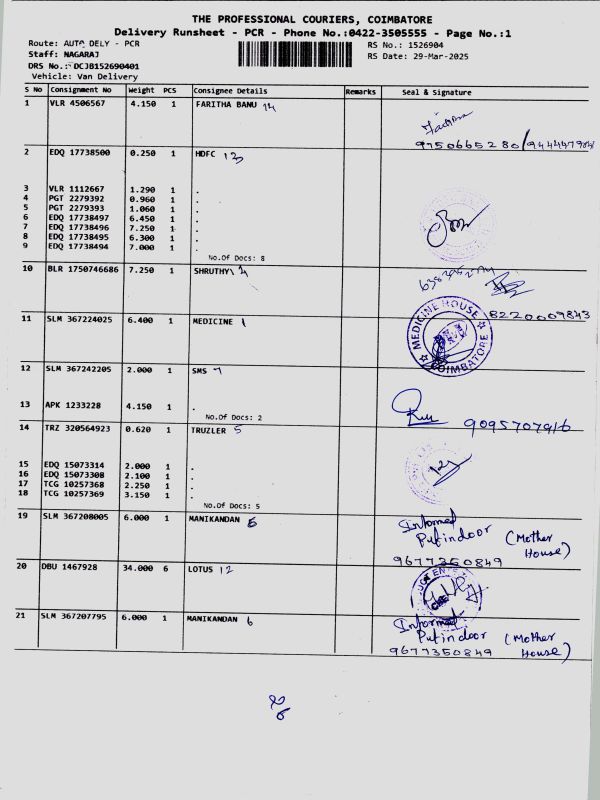 THE PROFESSIONAL COURIERS, COIMBATORE
Delivery Runsheet - PCR - Phone No.:0422-3505555 - Page No.:1
Route: AUTO DELY - PCR
RS No.: 1526904
Staff: NAGARAJ
RS Date: 29-Mar-2025
DRS No.: DCJB152690401
Vehicle: Van Delivery
S No Consignment No Weight PCS Consignee Details Remarks Seal & Signature
1 VLR 4506567 4.150 1 FARITHA BANU 14
2 EDQ 17738500 0.250 1 HDFC 13
3 VLR 1112667 1.290 1 .
4 PGT 2279392 0.960 1 .
5 PGT 2279393 1.060 1 .
6 EDQ 17738497 6.450 1 .
7 EDQ 17738496 7.250 1 .
8 EDQ 17738495 6.300 1 .
9 EDQ 17738494 7.000 1 .
No.Of Docs: 8
10 BLR 1750746686 7.250 1 SHRUTHY
8220009843
11 SLM 367224025 6.400 1 MEDICINE 1
MEDICINE HOUSE
COIMBATORE
12 SLM 367242205 2.000 1 SMS 7
13 APK 1233228 4.150 1 .
No.Of Docs: 2
9095707916
14 TRZ 320564923 0.620 1 TRUZLER 5
15 EDQ 15073314 2.000 1 .
16 EDQ 15073308 2.100 1 .
17 TCG 10257368 2.250 1 .
18 TCG 10257369 3.150 1 .
No.Of Docs: 5
19 SLM 367208005 6.000 1 MANIKANDAN 6
Informed
Put indoor (Mother House)
9677350849
20 DBU 1467928 34.000 6 LOTUS 12
21 SLM 367207795 6.000 1 MANIKANDAN 6
Informed
Put indoor (Mother House)
9677350849